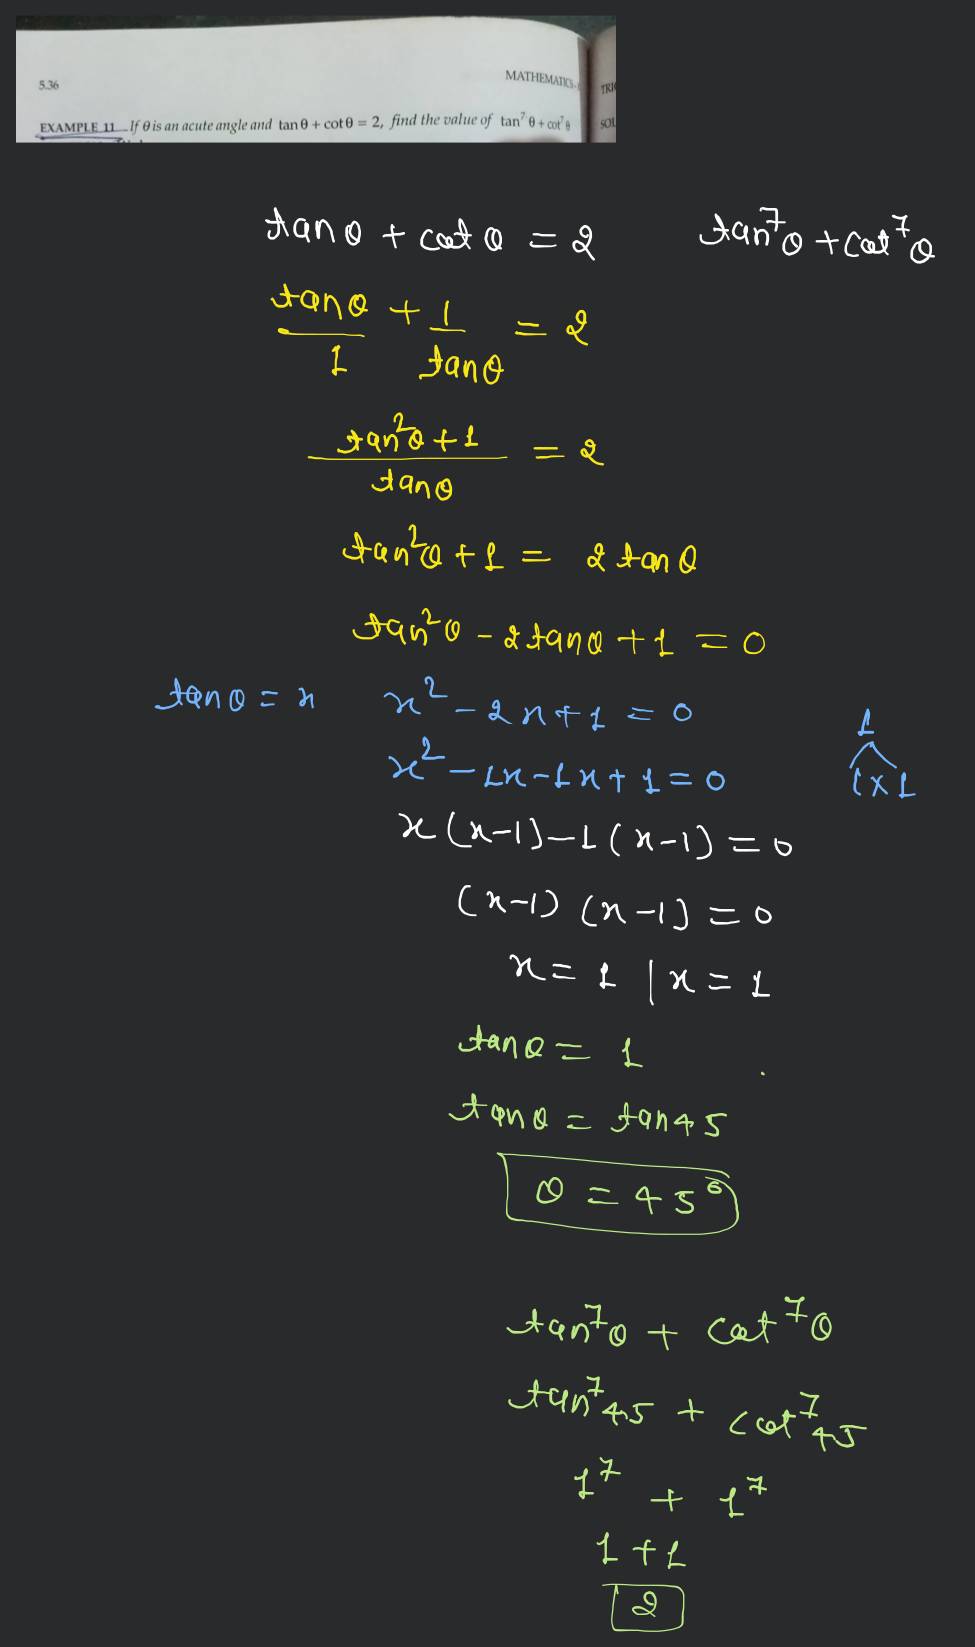 5.36 MATHEMATICS-
TRI
EXAMPLE 11 If θ is an acute angle and tan θ + cot θ = 2, find the value of tan⁷ θ + cot⁷ θ
SOL
tanθ + cotθ = 2 tan⁷θ + cot⁷θ
tanθ/1 + 1/tanθ = 2
(tan²θ + 1)/tanθ = 2
tan²θ + 1 = 2 tanθ
tan²θ - 2tanθ + 1 = 0
tanθ = x x² - 2x + 1 = 0
1
x² - 1x - 1x + 1 = 0 1 x 1
x(x-1) - 1(x-1) = 0
(x-1) (x-1) = 0
x = 1 | x = 1
tanθ = 1
tanθ = tan45
θ = 45°
tan⁷θ + cot⁷θ
tan⁷45 + cot⁷45
1⁷ + 1⁷
1 + 1
2